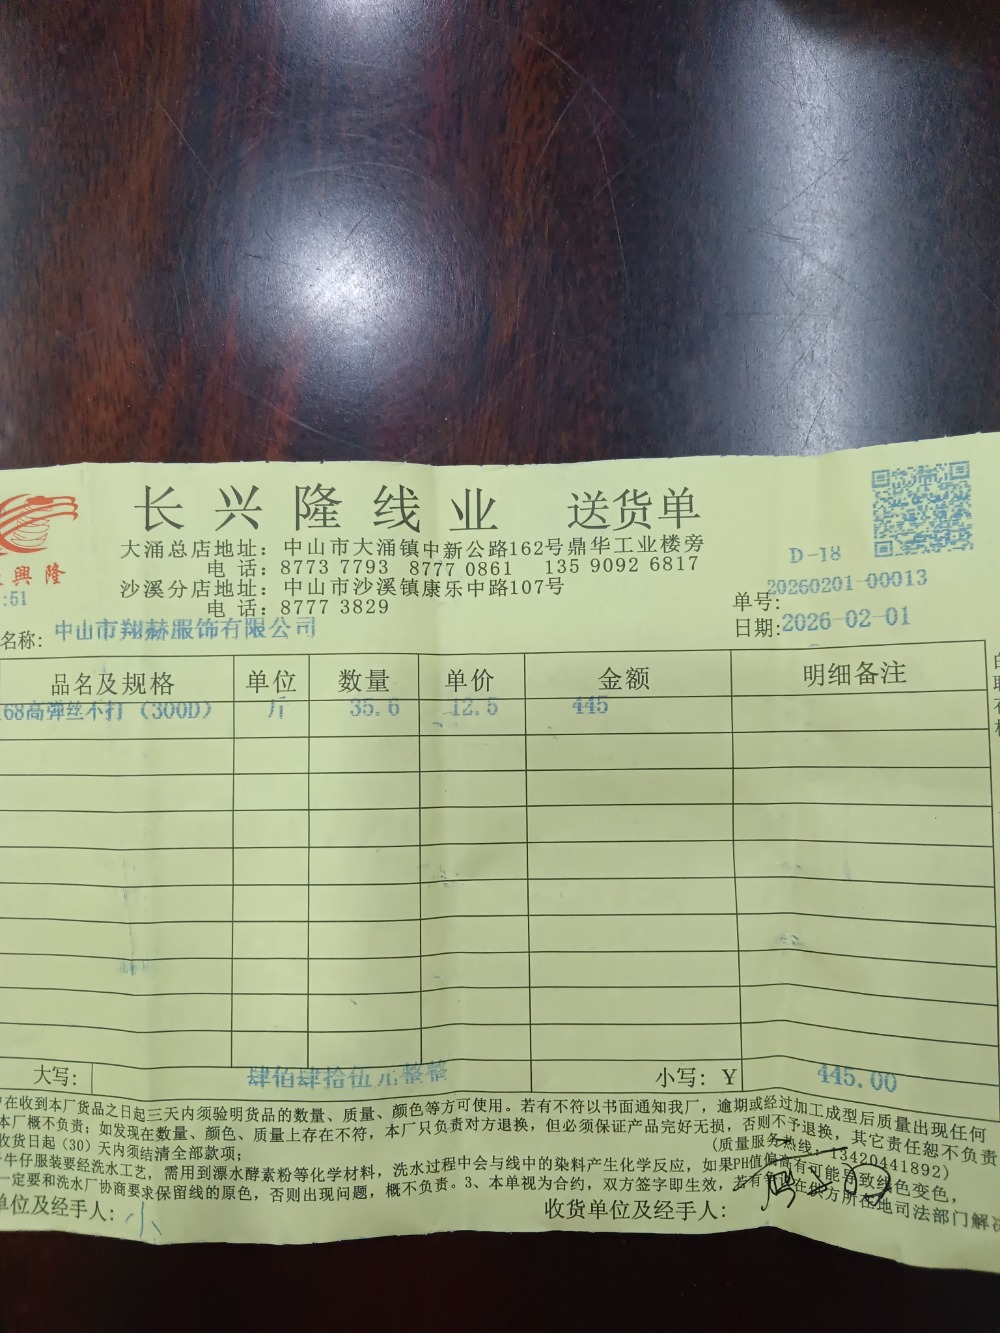 长兴隆线业 送货单
興隆
:51
大涌总店地址：中山市大涌镇中新公路162号鼎华工业楼旁
电 话：8773 7793 8777 0861 135 9092 6817
沙溪分店地址：中山市沙溪镇康乐中路107号
电 话：8777 3829
D-18
单号：20260201-00013
日期：2026-02-01
名称：中山市翔赫服饰有限公司
品名及规格 单位 数量 单价 金额 明细备注
68高弹丝不打（300D） 斤 35.6 12.5 445
大写： 肆佰肆拾伍元整整 小写：￥ 445.00
在收到本厂货品之日起三天内须验明货品的数量、质量、颜色等方可使用。若有不符以书面通知我厂，逾期或经过加工成型后质量出现任何
本厂概不负责；如发现在数量、颜色、质量上存在不符，本厂只负责对方退换，但必须保证产品完好无损，否则不予退换，其它责任恕不负责
收货日起（30）天内须结清全部款项； (质量服务热线：13420441892)
牛仔服装要经洗水工艺，需用到漂水酵素粉等化学材料，洗水过程中会与线中的染料产生化学反应，如果PH值偏高有可能导致线色变色，
一定要和洗水厂协商要求保留线的原色，否则出现问题，概不负责。3、本单视为合约，双方签字即生效，若有 在供方所在地司法部门解决
单位及经手人：小 收货单位及经手人：